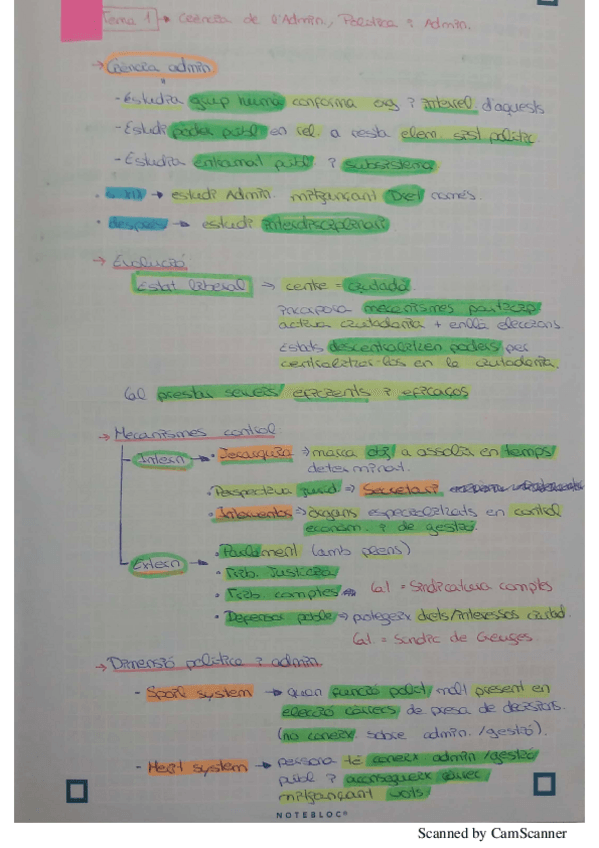 Tema 1 → Ciència de l'Admin, Política i Admin.
→ Ciència admin.
- Estudia grup humà conforma org i interrel. d'aquests
- Estudi poder públ en rel. a resta elem sist polític
- Estudia entramat públ i subsistema
• → estudi Admin. mitjançant Dret només.
• després → estudi interdisciplinari
→ Evolució
Estat liberal → centre = ciutadà
incorpora mecanismes particip
activa ciutadania + enllà eleccions
Estats descentralitzen poders per
centralitzar-los en la ciutadania.
Cal prestar serveis eficients i eficaços
→ Mecanismes control
Intern → • Jerarquia → marca obj a assolir en temps
determinat.
• Perspectiva juríd → Secretari
• Interventor → òrgans especialitzats en control
econòm. i de gestió
Extern → • Parlament (amb plens)
• Trib. Justícia
• Trib. comptes → Cat = Sindicatura comptes
• Defensor poble → protegeix drets/interessos ciutad.
Cat. = Síndic de Greuges
→ Dimensió política i admin.
- Spoil system → quan funció políct molt present en
elecció càrrecs de presa de decisions.
(no coneix. sobre admin./gestió).
- Merit system → persona té coneix admin/gestió
públ i aconsegueix càrrec
mitjançant vots.
NOTEBLOC®
Scanned by CamScanner